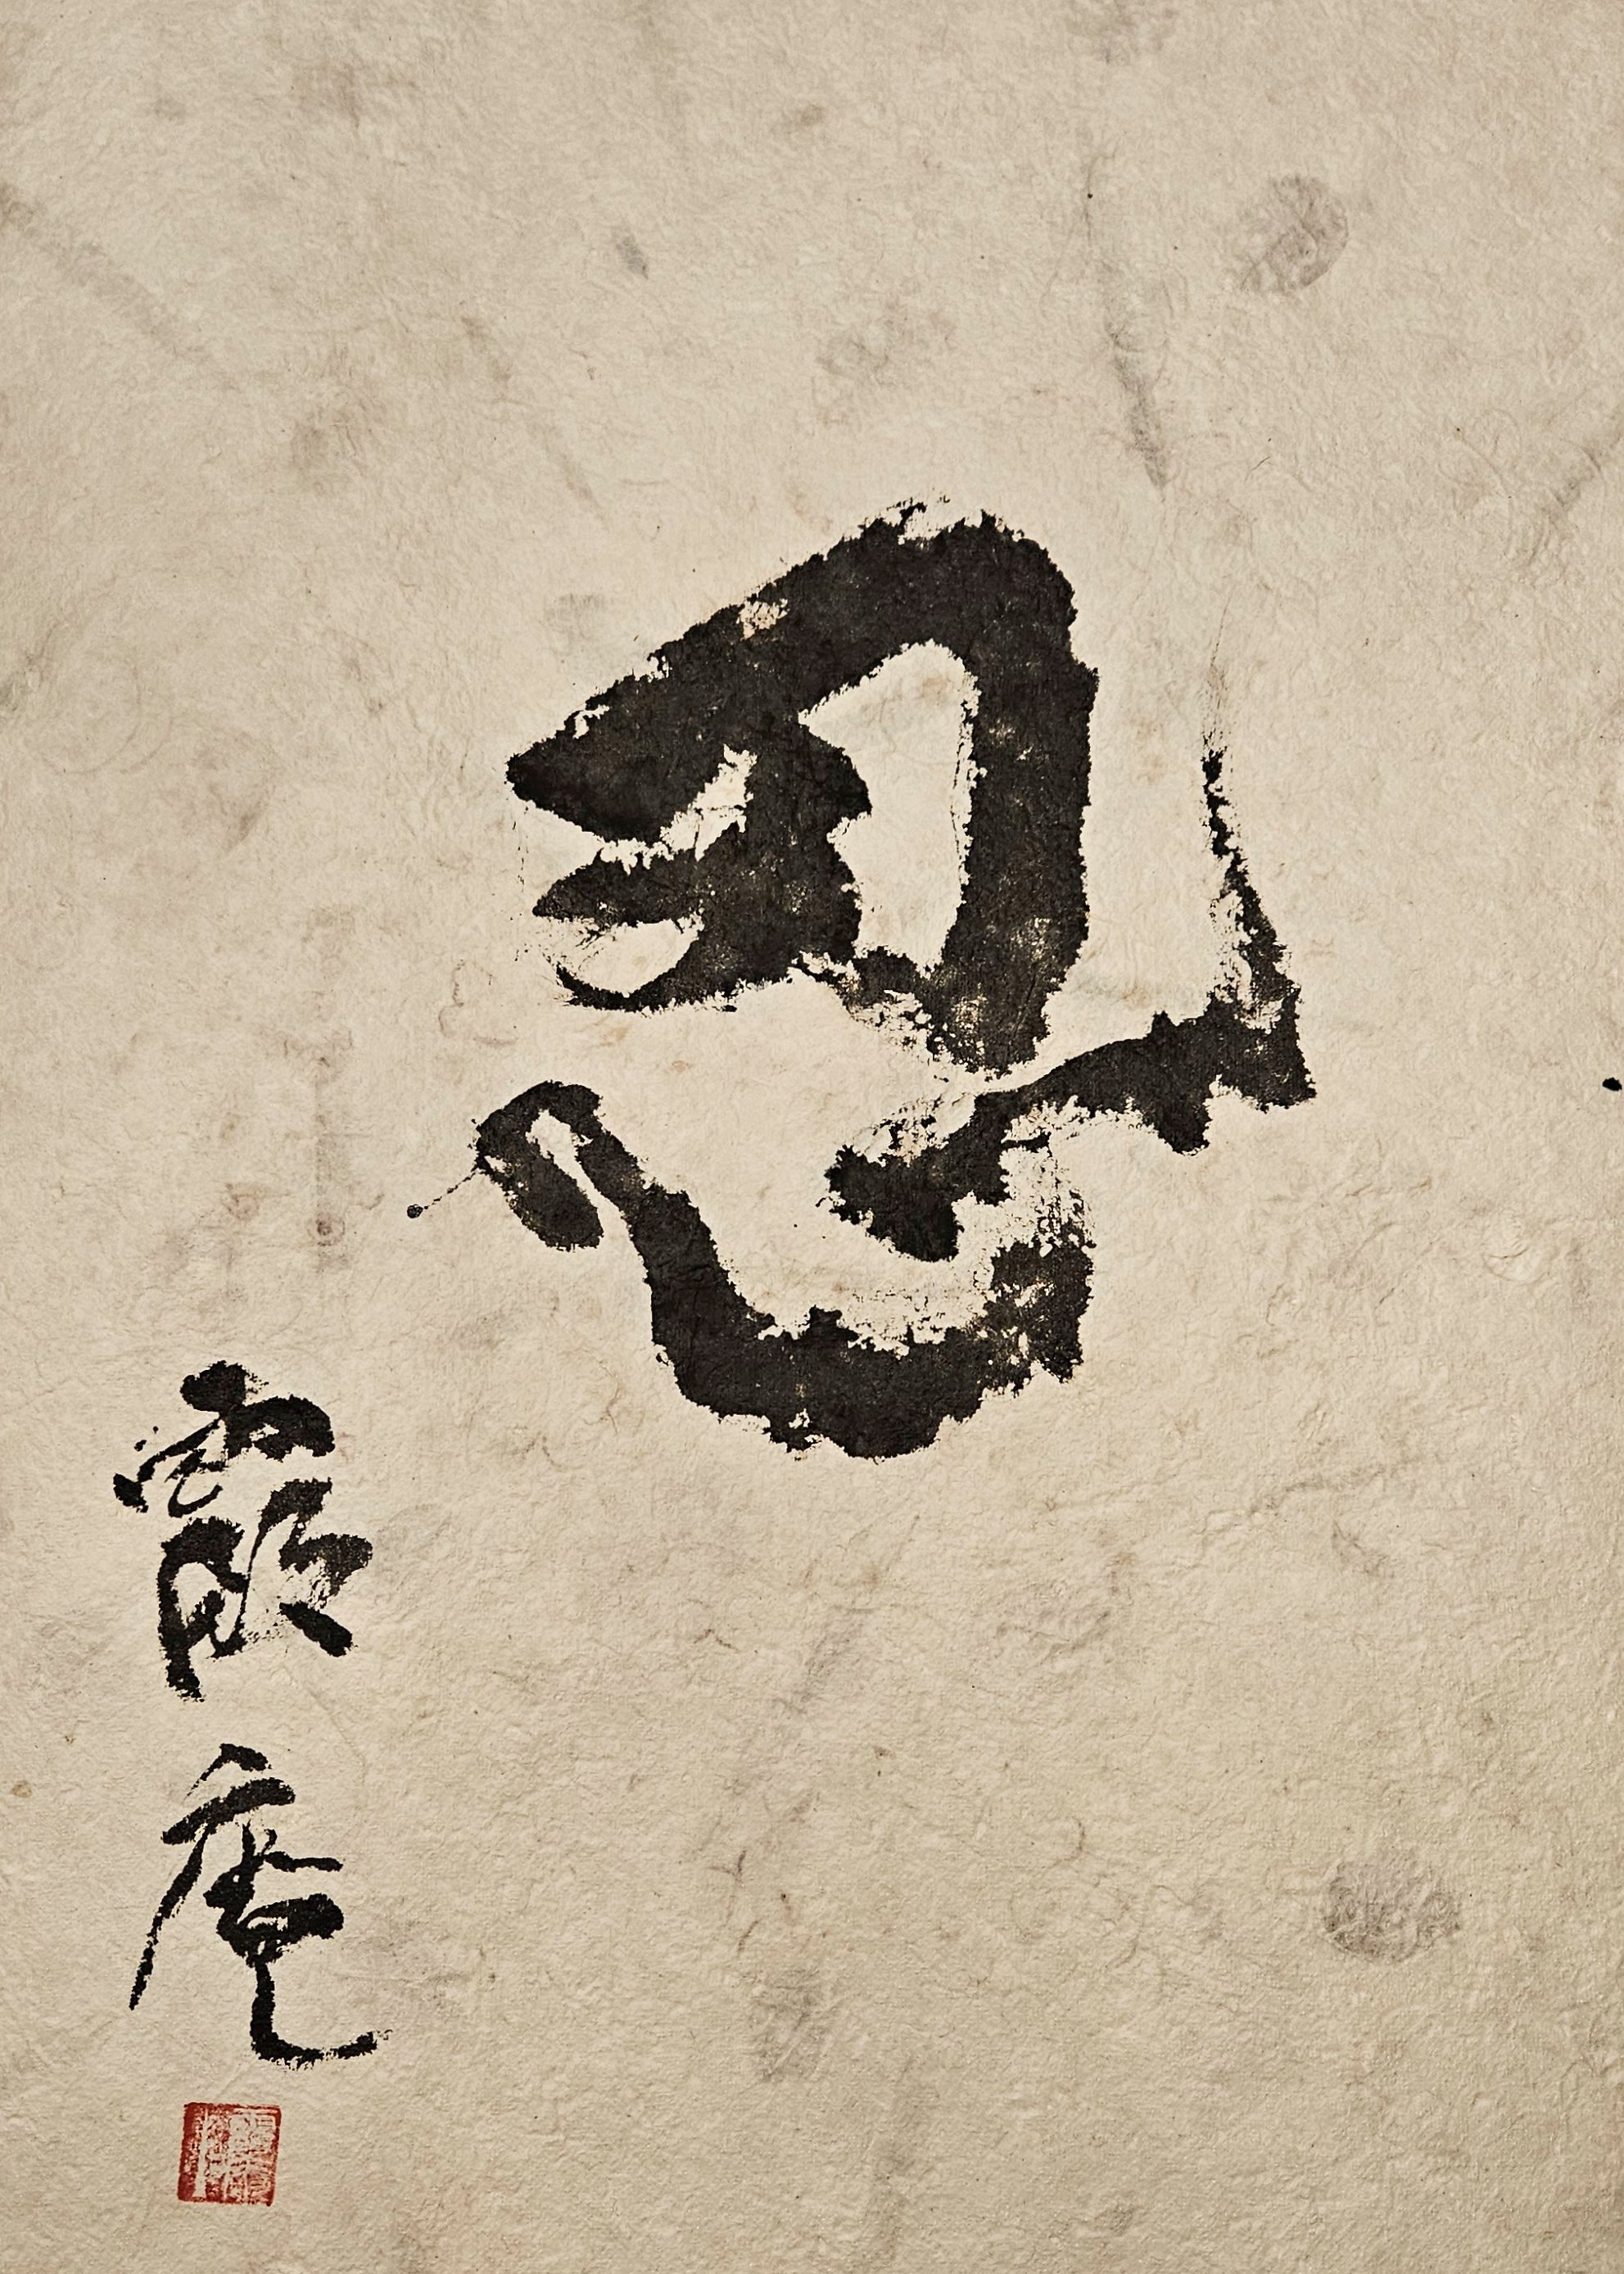 忍
霞庵